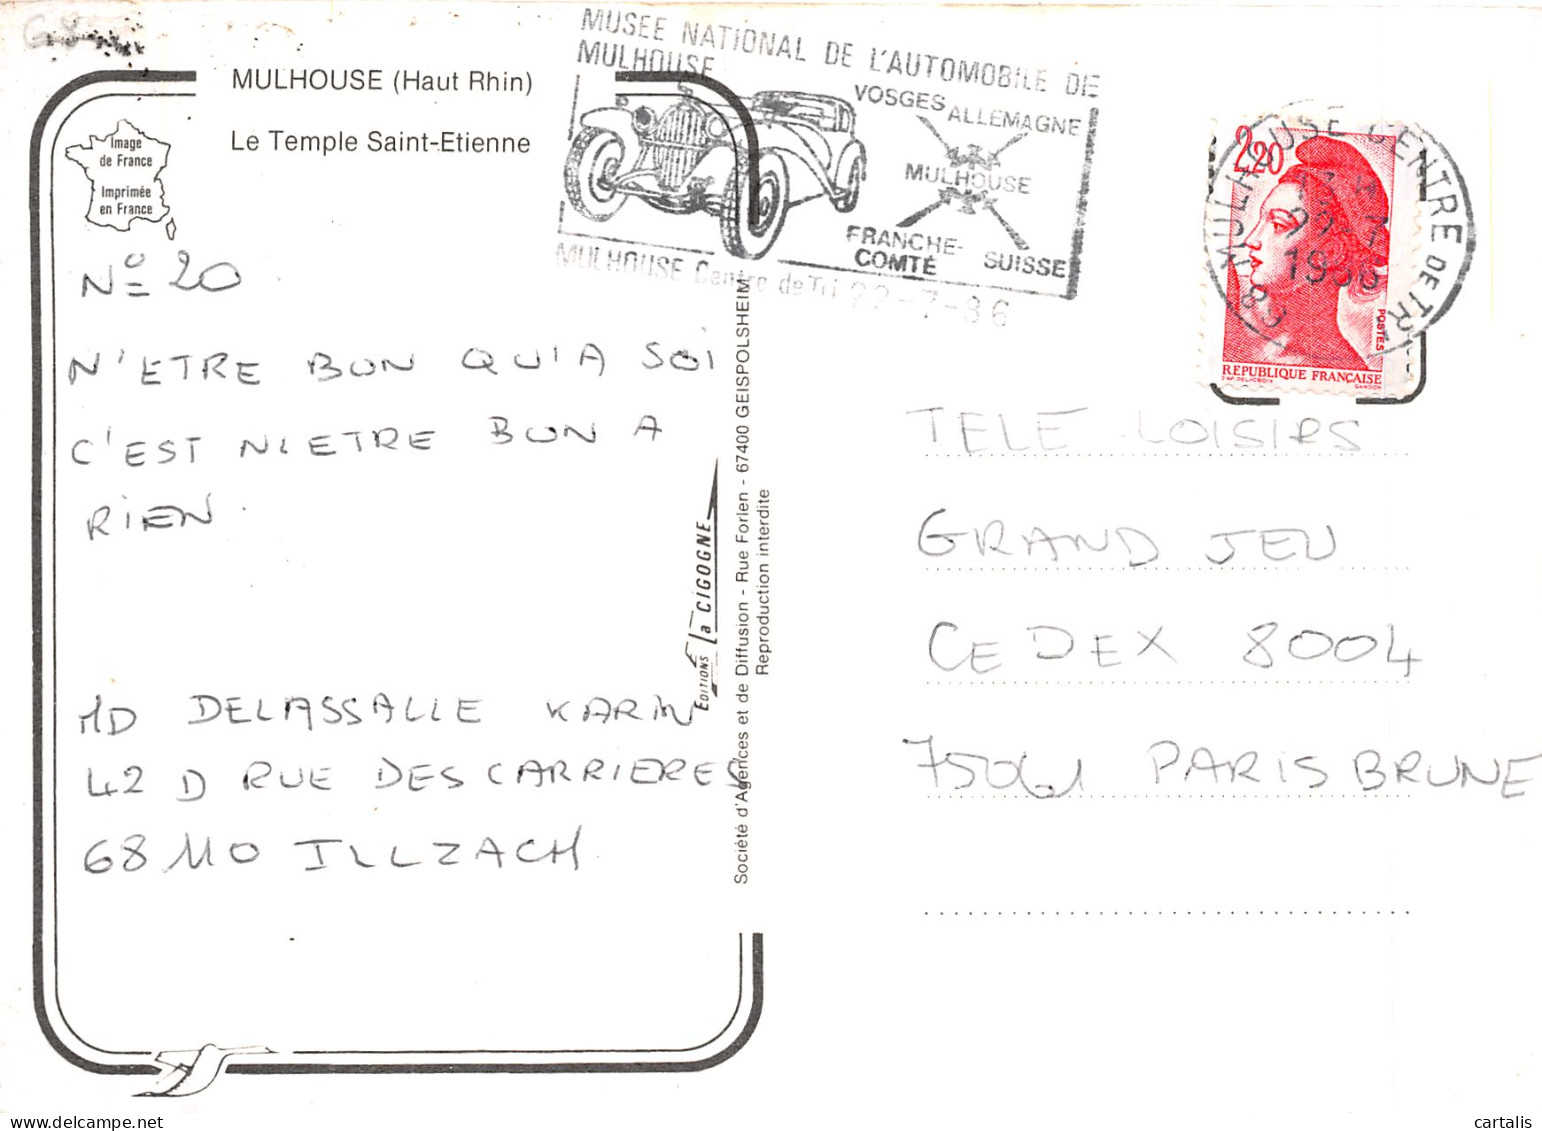 MUSEE NATIONAL DE L'AUTOMOBILE DE
MULHOUSE
VOSGES ALLEMAGNE
MULHOUSE
FRANCHE-
COMTÉ
SUISSE
MULHOUSE Centre de Tri 22-7-86
MULHOUSE CENTRE DE TRI
1986
2,20
POSTES
RÉPUBLIQUE FRANÇAISE
D'AP. DELACROIX GANDON
MULHOUSE (Haut Rhin)
Le Temple Saint-Etienne
Image
de France
Imprimée
en France
N° 20
N'ETRE BON QU'A SOI
C'EST N'ETRE BON A
RIEN.
MD DELASSALLE KARIN
42 D RUE DES CARRIERES
68110 ILLZACH
EDITIONS la CIGOGNE
Société d'Agences et de Diffusion - Rue Forlen - 67400 GEISPOLSHEIM
Reproduction interdite
TELE LOISIRS
GRAND JEU
CEDEX 8004
75061 PARIS BRUNE
cartalis